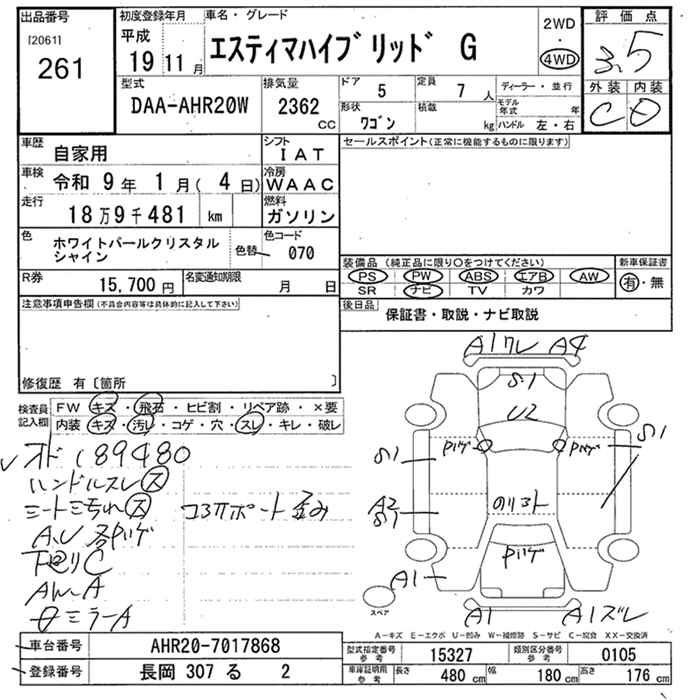 出品番号
[2061]
261
初度登録年月
平成
19 11 月
車名・グレード
エスティマハイブリッド G
2WD
・
4WD
評価点
3.5
外装 内装
C D
型式
DAA-AHR20W
排気量
2362
CC
ドア
5
定員
7 人
形状
ワゴン
積載
kg
ディーラー・並行
モデル年式 年
ハンドル 左・右
車歴
自家用
シフト
IAT
車検
令和 9年 1月( 4日)
冷房
WAAC
走行
18万9千481 km
燃料
ガソリン
色
ホワイトパールクリスタル
シャイン
色替
色コード
070
R券
15,700 円
名変通知期限
月 日
セールスポイント(正常に機能するものに限ります)
装備品 (純正品に限り○をつけてください)
PS PW ABS エアB AW
SR ナビ TV カワ
新車保証書
有・無
後日品
保証書・取説・ナビ取説
注意事項申告欄 (不具合内容等は具体的に記入して下さい)
修復歴 有〔箇所 〕
検査員
記入欄
FW キズ・飛石・ヒビ割・リペア跡・×要
内装 キズ・汚レ・コゲ・穴・スレ・キレ・破レ
オド 189480
ハンドルスレ ス
シート三汚れ ス
コラムポート歪み
A.U 各ハゲ
下廻りC
AW.A
左ミラーA
A1ワレ A4
S1
U2
Pハゲ
Pハゲ
S1
S1
A2
S1
のりコト
Pハゲ
A1
A1
A1ズレ
スペア
A-キズ E-エクボ U-凹み W-補修跡 S-サビ C-腐食 XX-交換済
車台番号
AHR20-7017868
登録番号
長岡 307 る 2
型式指定番号
参考
15327
類別区分番号
参考
0105
車庫証明用
参考
長さ
480 cm
幅
180 cm
高さ
176 cm